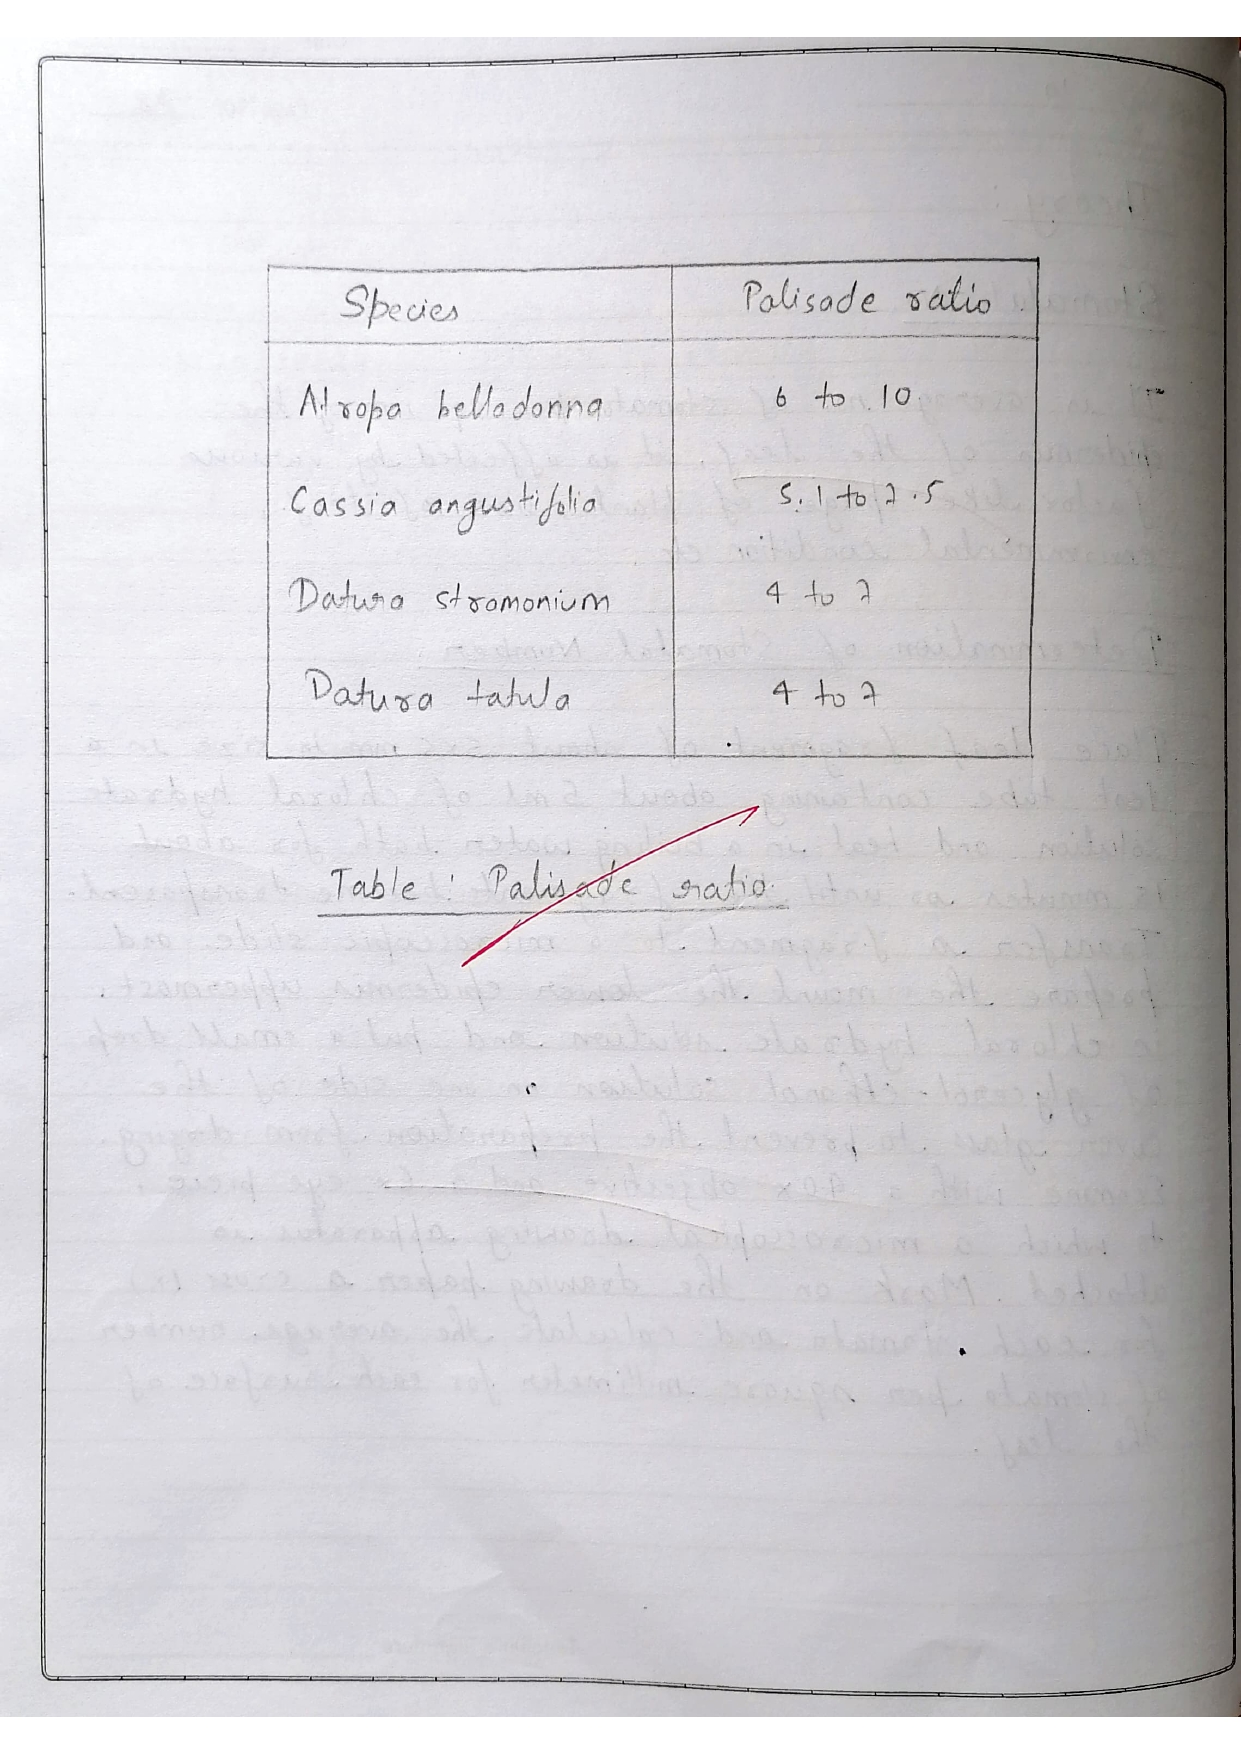 Species Palisade ratio
Atropa belladonna 6 to 10
Cassia angustifolia 5.1 to 7.5
Datura stromonium 4 to 7
Datura tatula 4 to 7
Table : Palisade ratio.